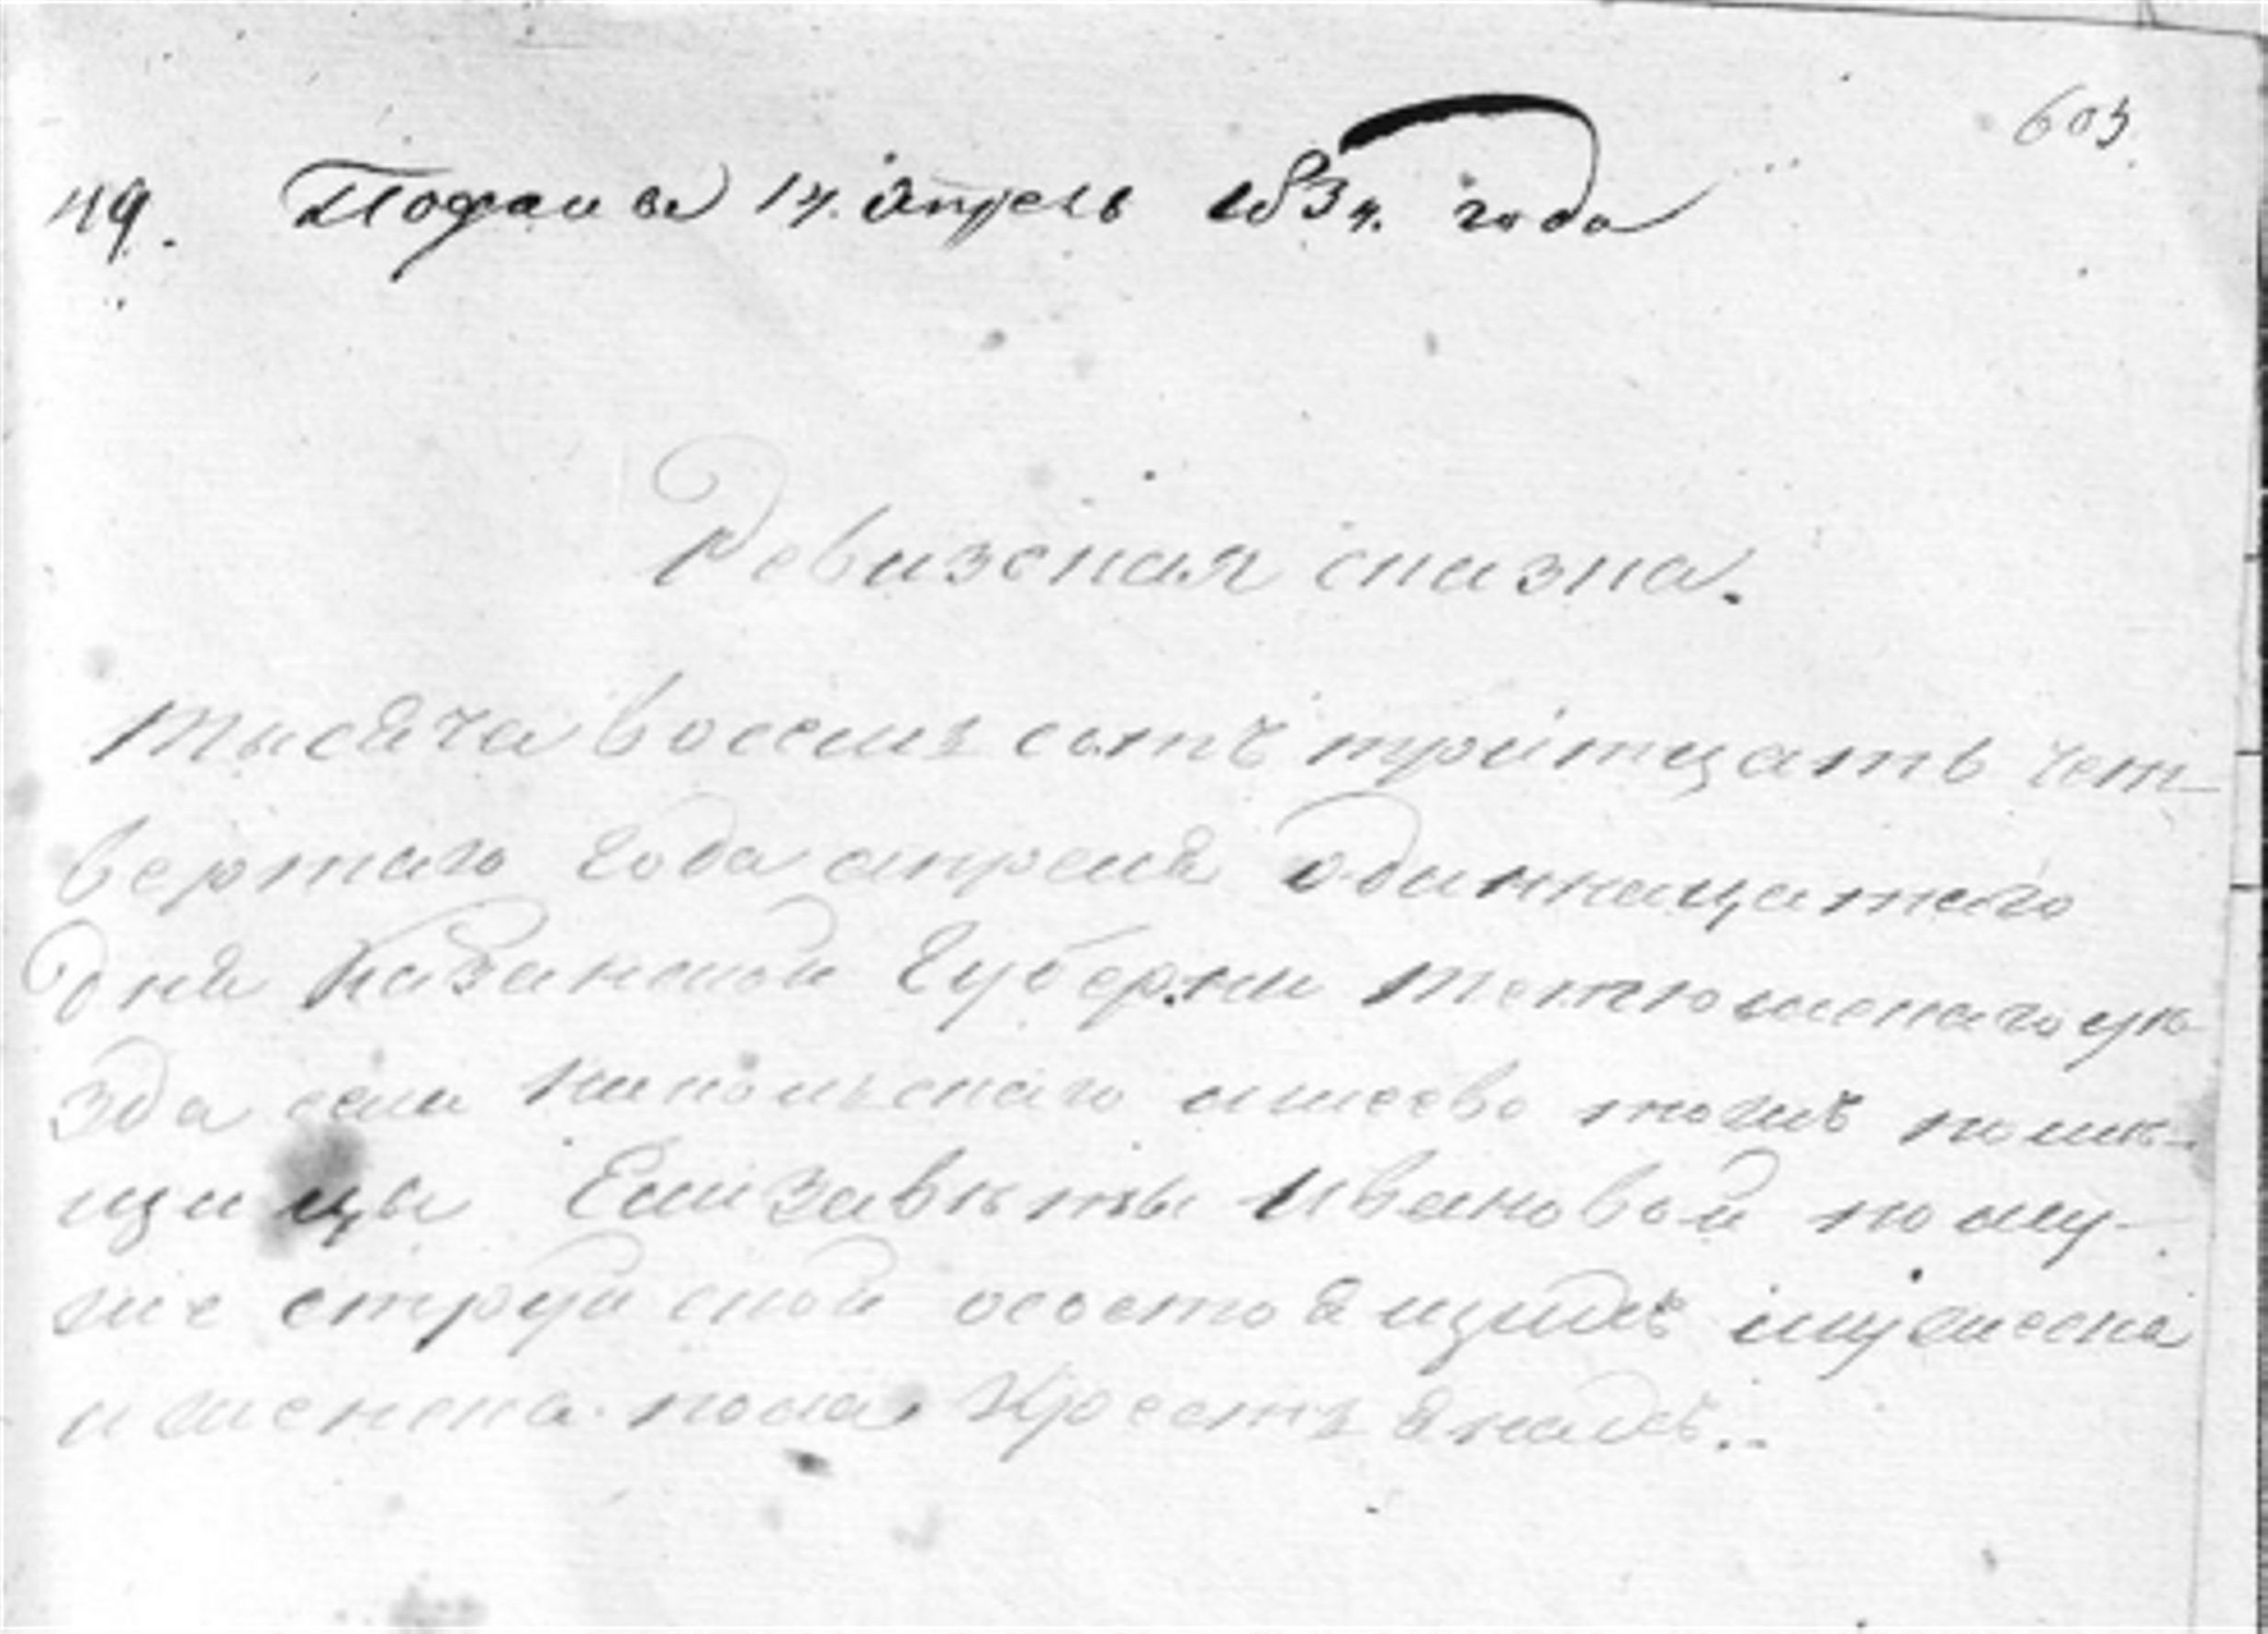 603
49. Подана 14. Апрель 1834. года
Ревизская сказка.
тысяча восемъ сотъ тритцать чет-
вертаго года апреля одиннацатаго
дня Казанской Губернии тетюшскаго уѣ
зда села никольскаго тожъ помѣ-
щицы Елизавѣты Ивановой по му-
же струйской осостоящихъ мужеска
и женска пола крестьянахъ..